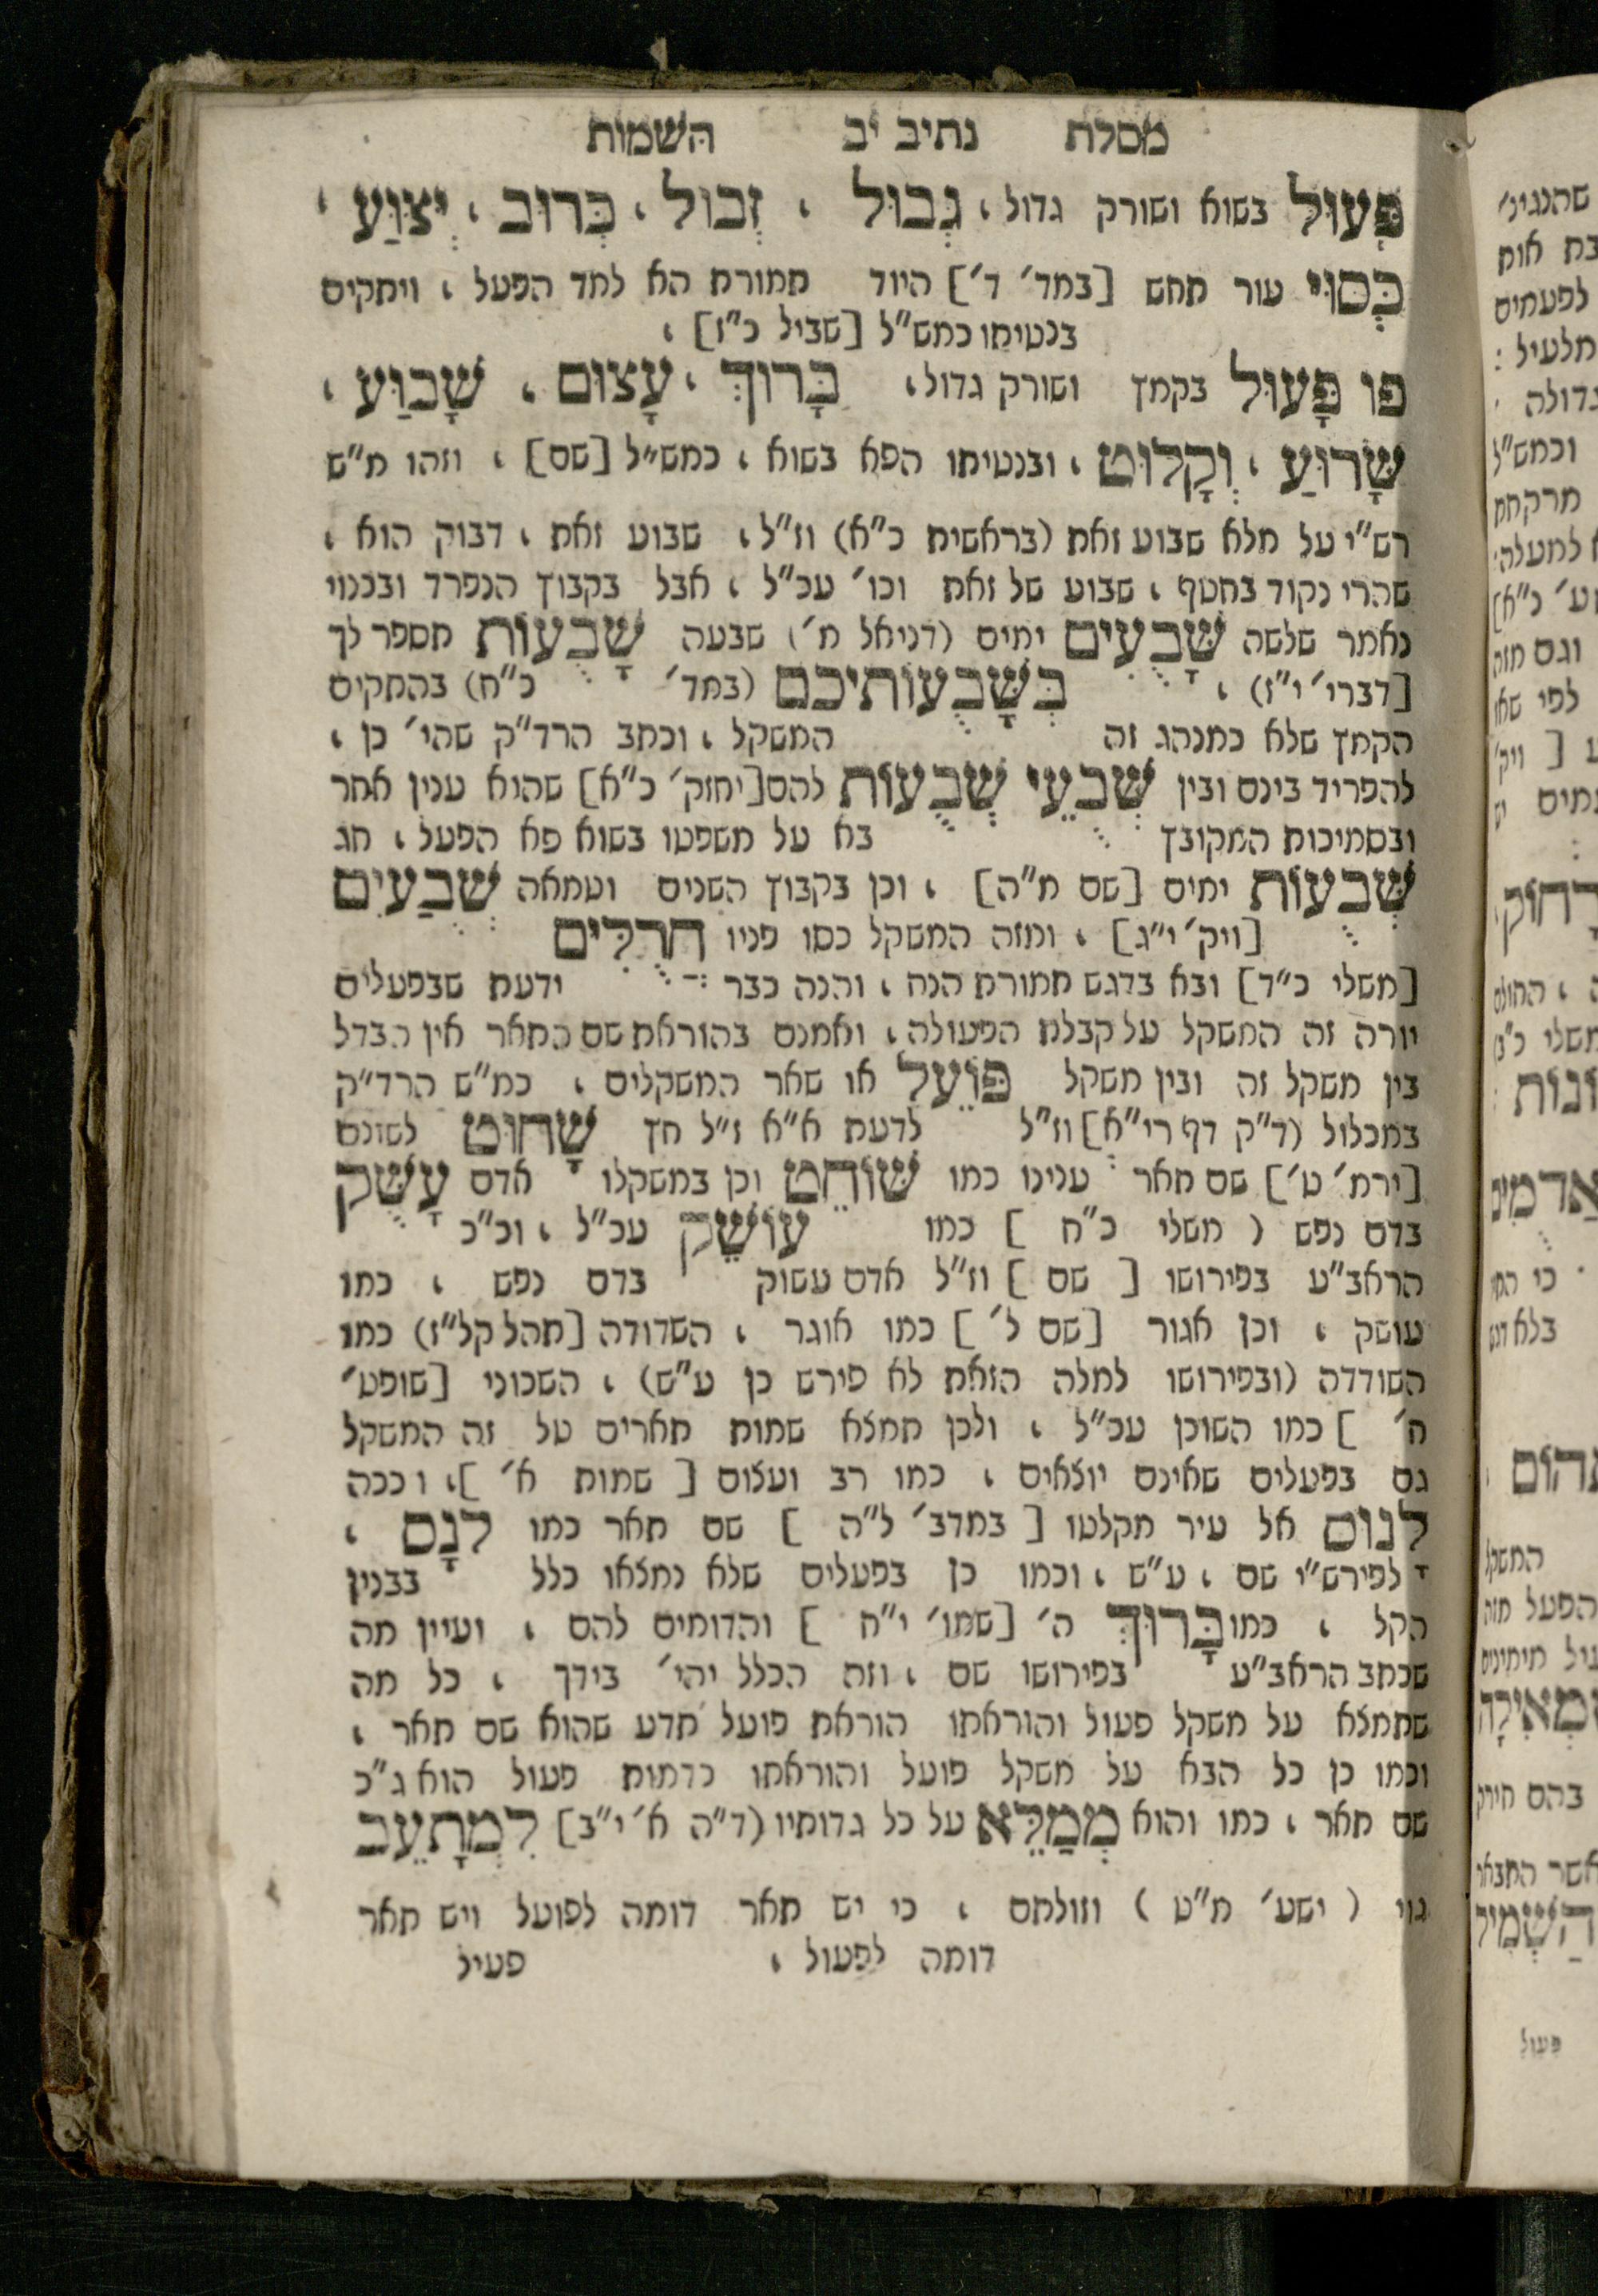 מסלת נתיב יב השמות
פְּעוּל בשוא ושורק גדול, גְּבוּל, זְבוּל, כְּרוּב, יְצוּעַ,
כְּסוּי עור תחש [במד׳ ד׳] היוד תמורת הא למד הפעל, ויתקים
בנטיתו כמש״ל [שביל כ״ז],
פו פָּעוּל בקמץ ושורק גדול, בָּרוּךְ, עָצוּם, שָׁבוּעַ,
שָׂרוּעַ, וְקָלוּט, ובנטיתו הפא בשוא, כמש״ל [שם], וזהו מ״ש
רש״י על מלא שבוע זאת (בראשית כ״א) וז״ל, שבוע זאת, דבוק הוא,
שהרי נקוד בחטף, שבוע של זאת וכו׳ עכ״ל, אבל בקבוץ הנפרד ובכנוי
נאמר שלשה שָׁבֻעִים ימים (דניאל מ׳) שבעה שָׁבֻעוֹת תספר לך
[דברי׳ י״ז), בְּשָׁבֻעוֹתֵיכם (במד׳ כ״ח) בהתקים
הקמץ שלא כמנהג זה המשקל, וכתב הרד״ק שהי׳ כן,
להפריד בינם ובין שְׁבֻעֵי שְׁבֻעוֹת להם[יחזק׳ כ״א] שהוא ענין אחר
ובסמיכות המקובץ בא על משפטו בשוא פא הפעל, חג
שְׁבֻעוֹת ימים [שם מ״ה], וכן בקבוץ השנים וטמאה שְׁבֻעַיִם
[ויק׳ י״ג], ומזה המשקל כסו פניו חֲרֻלִּים
[משלי כ״ד] ובא בדגש תמורת הנח, והנה כבר ידעת שבפעלים
יורה זה המשקל על קבלת הפעולה, ואמנם בהוראת שם התאר אין הבדל
בין משקל זה ובין משקל פּוֹעֵל או שאר המשקלים, כמ״ש הרד״ק
במכלול (ד״ק דף רי״א] וז״ל לדעת א״א ז״ל חץ שָׁחוּט לשונם
[ירמ׳ ט׳] שם תאר ענינו כמו שׁוֹחֵט וכן במשקלו אדם עָשֻׁק
בדם נפש ( משלי כ״ח ] כמו עוֹשֵׁק עכ״ל, וכ״כ
הראב״ע בפירושו [ שם ] וז״ל אדם עשוק בדם נפש, כמו
עושק, וכן אגור [שם ל׳ ] כמו אוגר, השדודה [תהל קל״ז) כמו
השודדה (ובפירושו למלה הזאת לא פירש כן ע״ש), השכוני [שופט׳
ח׳ ] כמו השוכן עכ״ל, ולכן תמצא שמות תארים על זה המשקל
גם בפעלים שאינם יוצאים, כמו רב ועצום [ שמות א׳ ], וככה
לָנוּס אל עיר מקלטו [ במדב׳ ל״ה ] שם תאר כמו לַנָּס,
לפירש״י שם, ע״ש, וכמו כן בפעלים שלא נמצאו כלל בבנין
הקל, כמו בָּרוּךְ ה׳ [שמו׳ י״ח ] והדומים להם, ועיין מה
שכתב הראב״ע בפירושו שם, וזה הכלל יהי׳ בידך, כל מה
שתמצא על משקל פעול והוראתו הוראת פועל תדע שהוא שם תאר,
וכמו כן כל הבא על משקל פועל והוראתו כדמות פעול הוא ג״כ
שם תאר, כמו והוא מְמַלֵּא על כל גדותיו (ד״ה א׳ י״ב] לִמְתָעֵב
גוי ( ישע׳ מ״ט ) וזולתם, כי יש תאר דומה לפועל ויש תאר
דומה לפעול, פעיל